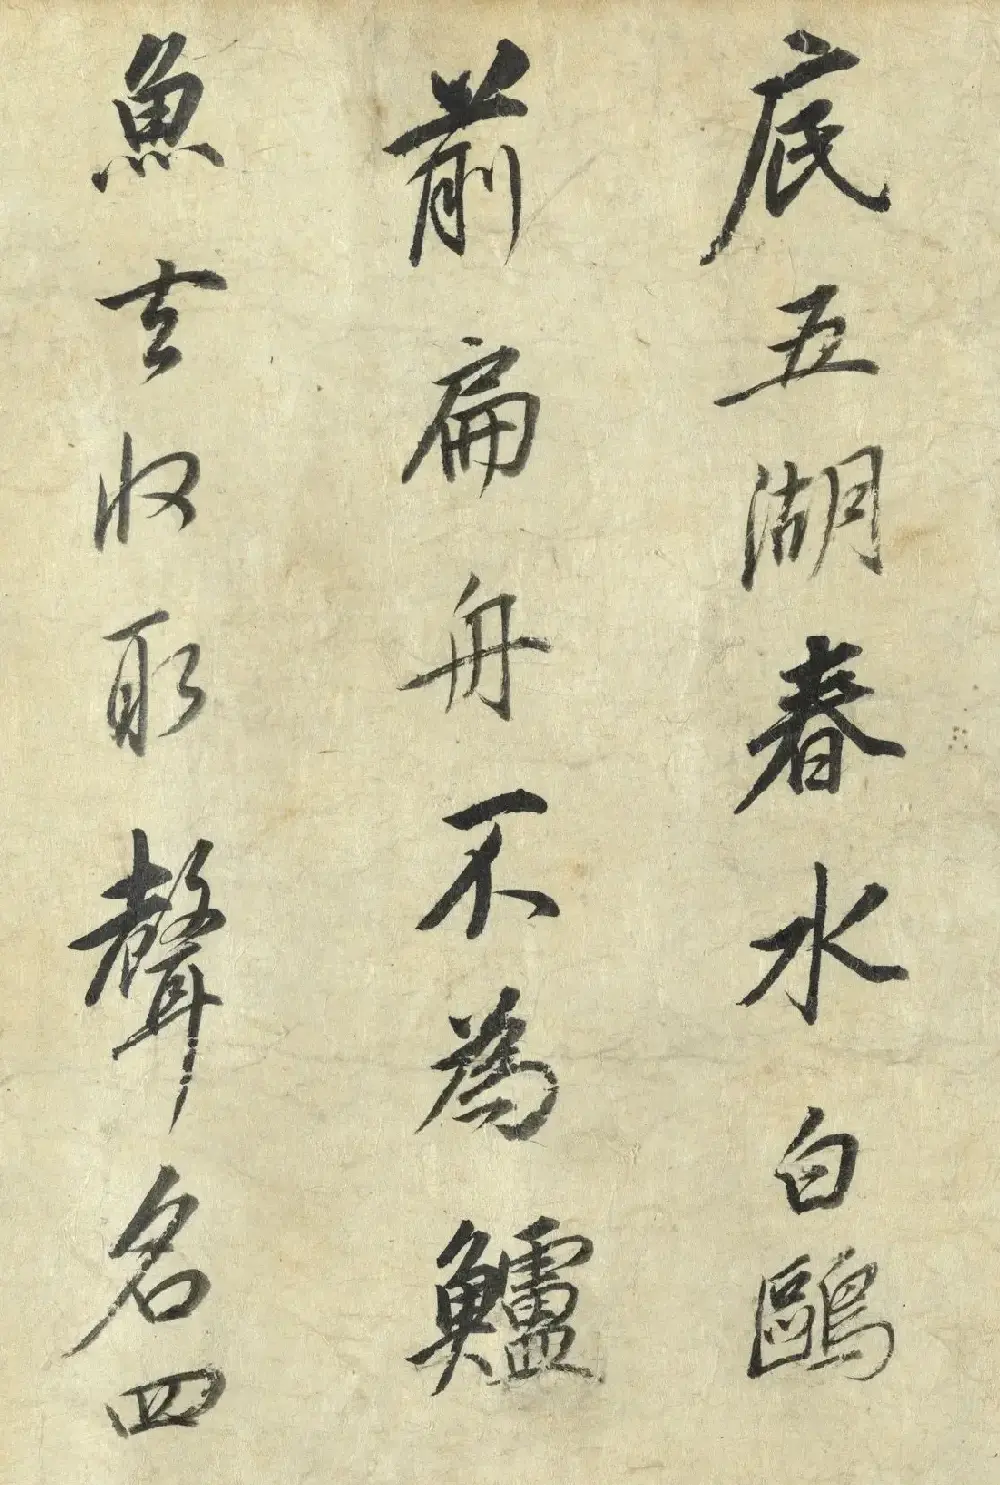 底五湖春水白鷗
前扁舟不為鱸
魚去收取聲名四